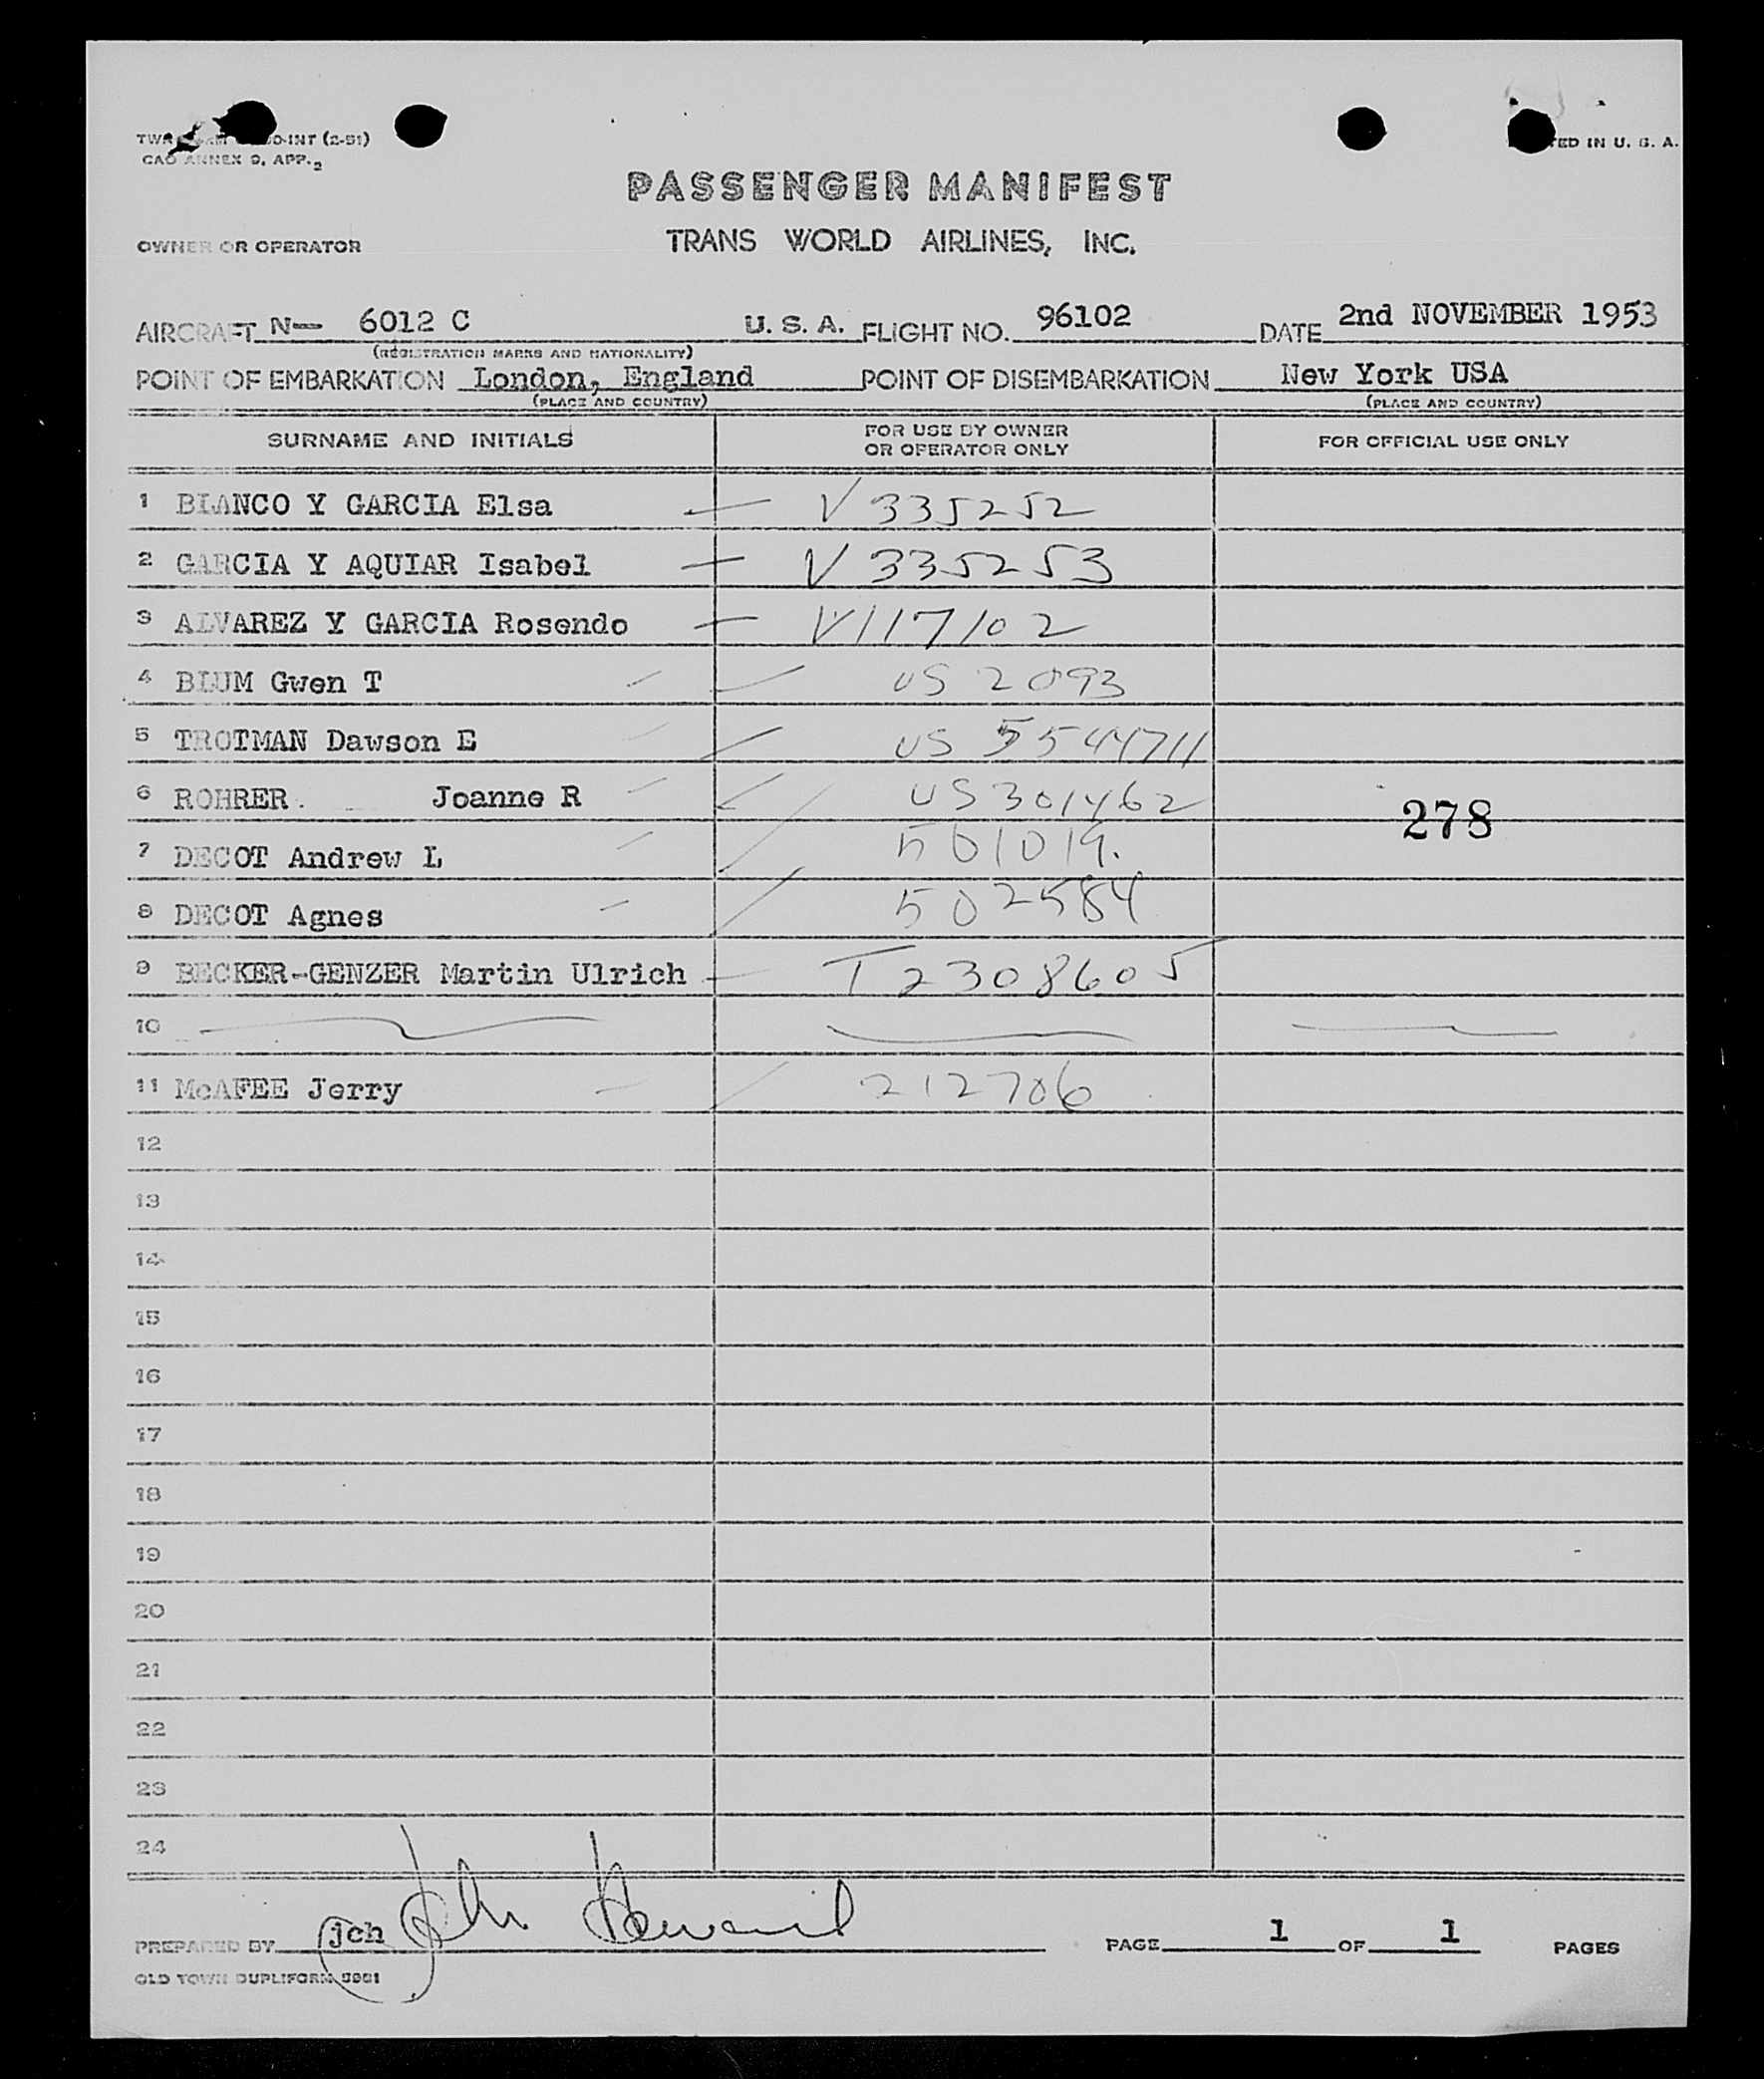 (2-51)
CAO ANNEX 9, APP. 2
IN U. S. A.
PASSENGER MANIFEST
OWNER OR OPERATOR TRANS WORLD AIRLINES, INC.
AIRCRAFT N-- 6012 C U. S. A. FLIGHT NO. 96102 DATE 2nd NOVEMBER 1953
(REGISTRATION MARKS AND NATIONALITY)
POINT OF EMBARKATION London, England POINT OF DISEMBARKATION New York USA
(PLACE AND COUNTRY) (PLACE AND COUNTRY)
SURNAME AND INITIALS FOR USE BY OWNER OR OPERATOR ONLY FOR OFFICIAL USE ONLY
1 BLANCO Y GARCIA Elsa — V 335252
2 GARCIA Y AQUIAR Isabel — V 335253
3 ALVAREZ Y GARCIA Rosendo — V117102
4 BLUM Gwen T US 2093
5 TROTMAN Dawson E US 5544711
6 ROHRER Joanne R US 301462
278
7 DECOT Andrew L 501019.
8 DECOT Agnes 502584
9 BECKER-GENZER Martin Ulrich — T 2308605
10
11 McAFEE Jerry 212706
12
13
14
15
16
17
18
19
20
21
22
23
24
PREPARED BY jch John Howard PAGE 1 OF 1 PAGES
OLD TOWN DUPLIFORM